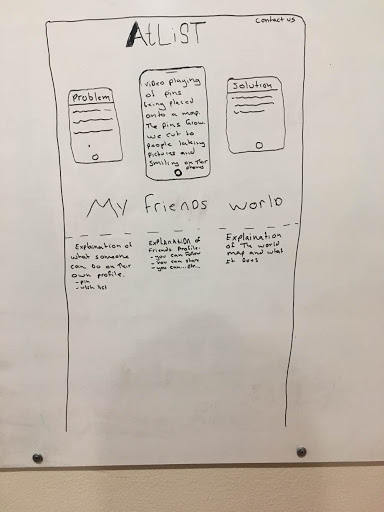 Contact us
AtLiST
Problem
video playing
of pins
being placed
onto a map.
The pins Grow.
we cut to
people taking
pictures and
smiling on their
phones
Solution
My friends world
Explaination of
what someone
can Do on their
own profile.
- pin
- wish list
EXPLANATION of
friends profile.
- you can follow
- you can share
- you can...etc..
Explaination
of The world
map and what
it does